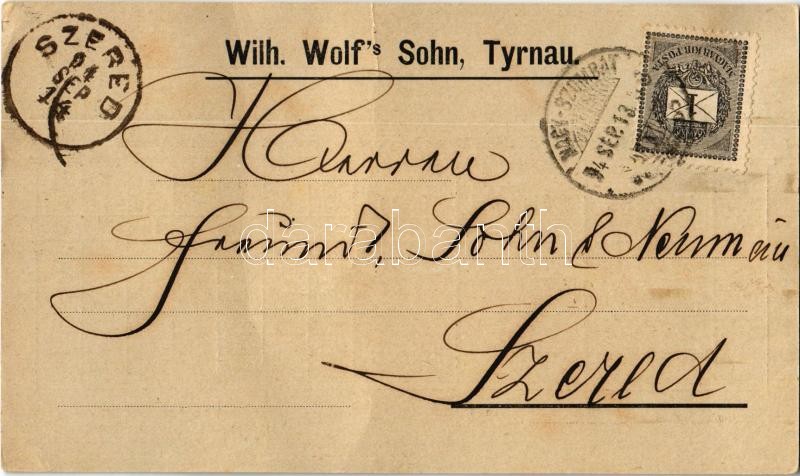 Wilh. Wolf's Sohn, Tyrnau.
SZERED
94 SEP
NAGY-SZOMBAT
94 SEP. 13
MAGYAR KIR. POSTA
1
Herren
Freund, Sohn & Neumann
Szered
darabanth